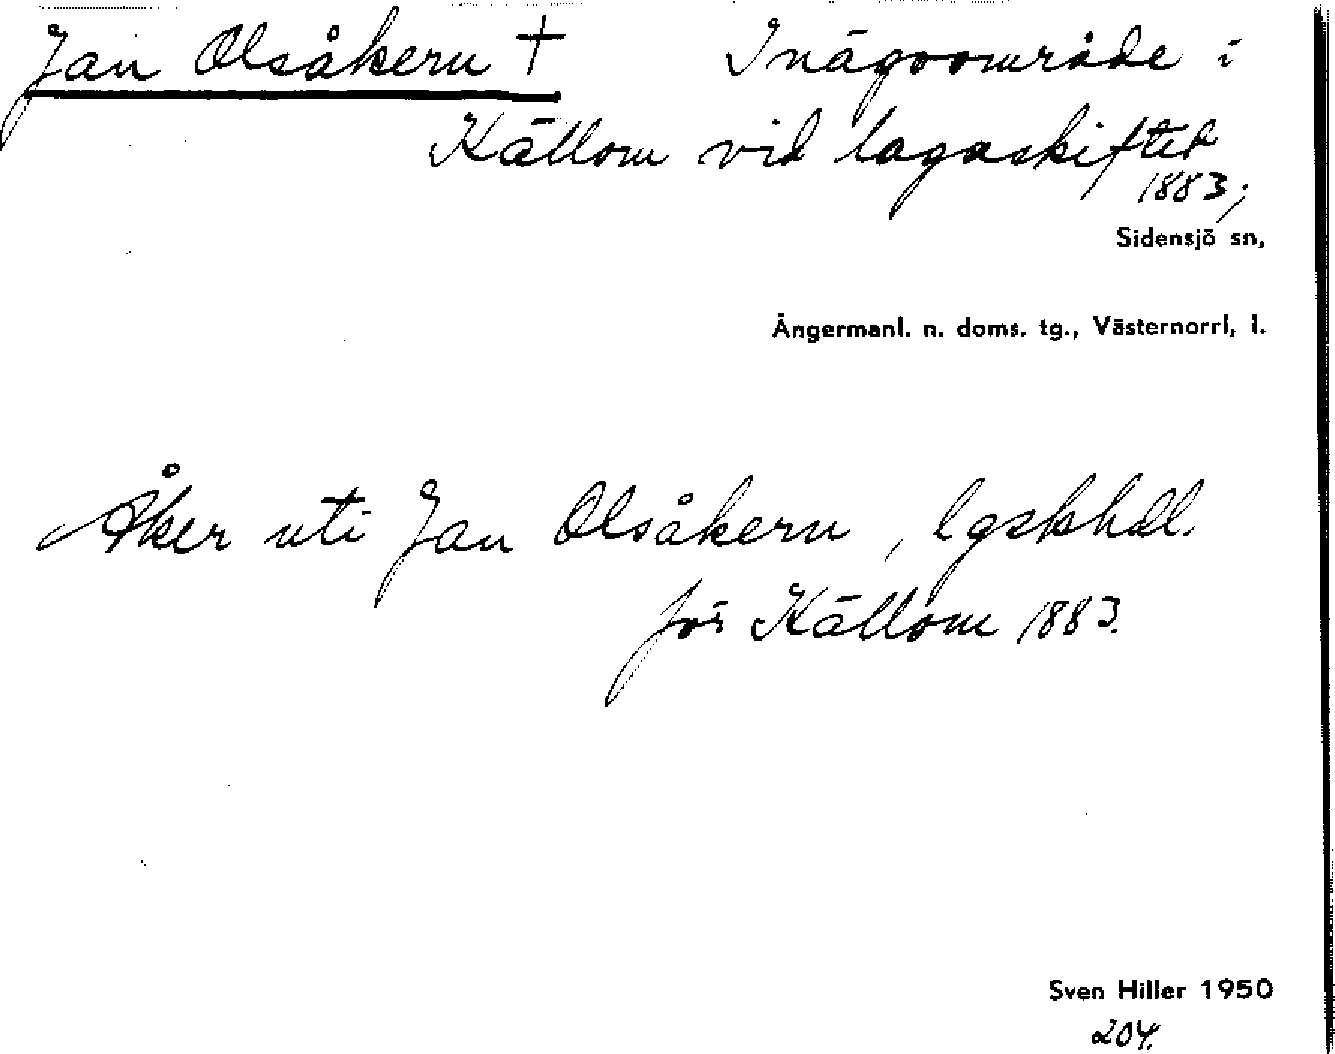 Jan Olsåkern † Inägoområde i
Källom vid lagaskiftet
1883;
Sidensjö sn,
Ångermanl. n. doms. tg., Västernorrl, l.
Åker uti Jan Olsåkern, lgskhdl.
för Källom 1883.
Sven Hiller 1950
204.